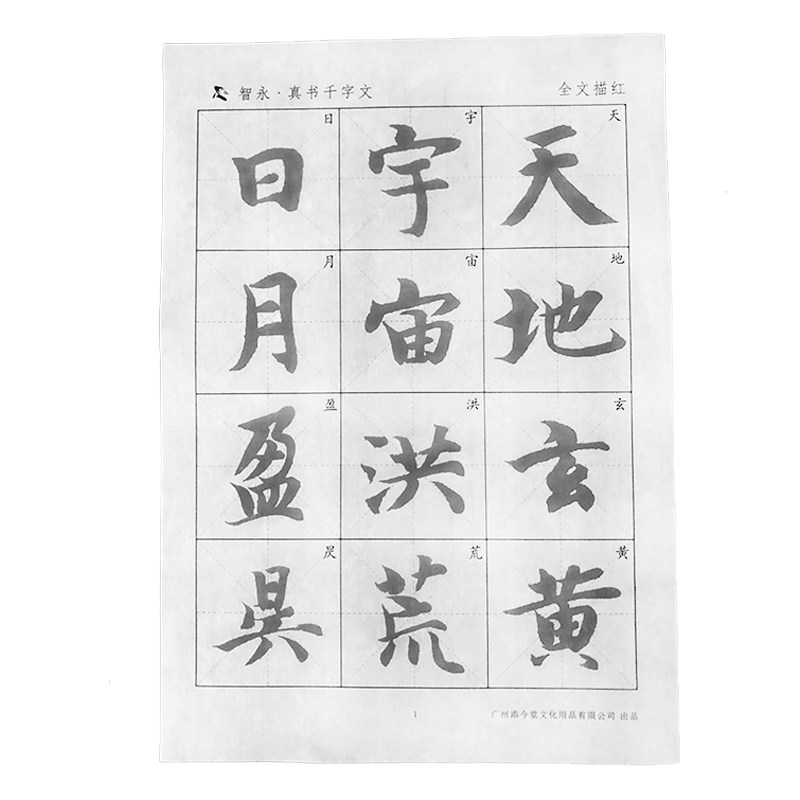 智永·真书千字文
全文描红
天 天
地 地
玄 玄
黄 黄
宇 宇
宙 宙
洪 洪
荒 荒
日 日
月 月
盈 盈
昃 昃
1
广州添今堂文化用品有限公司 出品